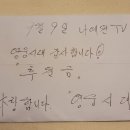 1월 9일 나이연 TV
영웅시대 감사합니다
후원금
사랑합니다. 영웅시대